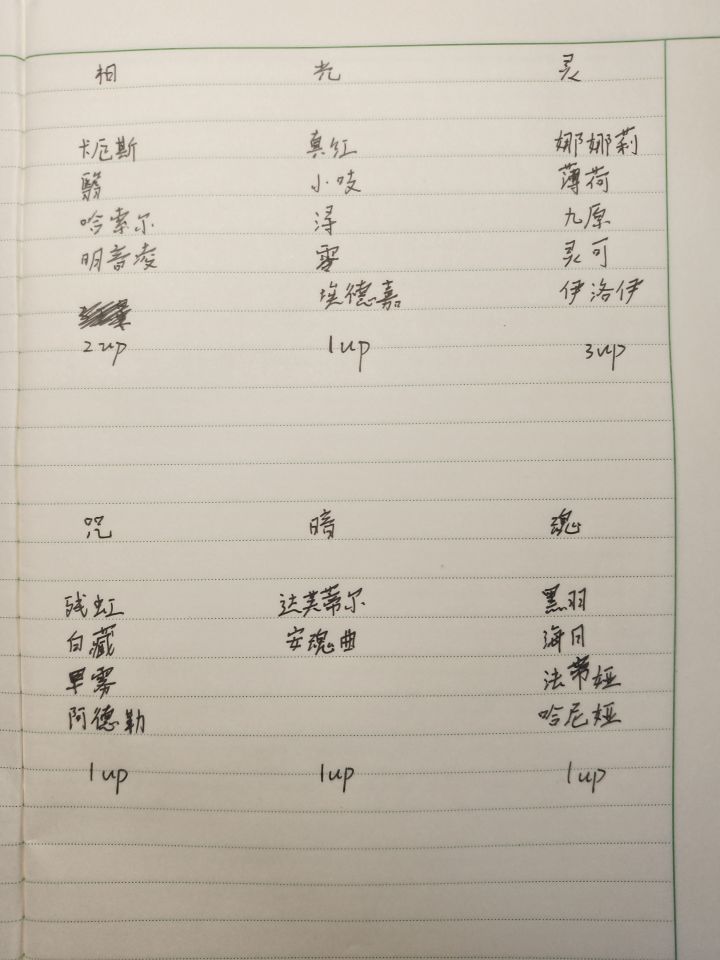 相 光 灵
卡厄斯 真红 娜娜莉
翳 小吱 薄荷
哈索尔 浔 九原
明音凌 零 灵可
埃德嘉 伊洛伊
2up 1up 3up
咒 暗 魂
残虹 达芙蒂尔 黑羽
白藏 安魂曲 海月
早雾 法蒂娅
阿德勒 哈尼娅
1up 1up 1up